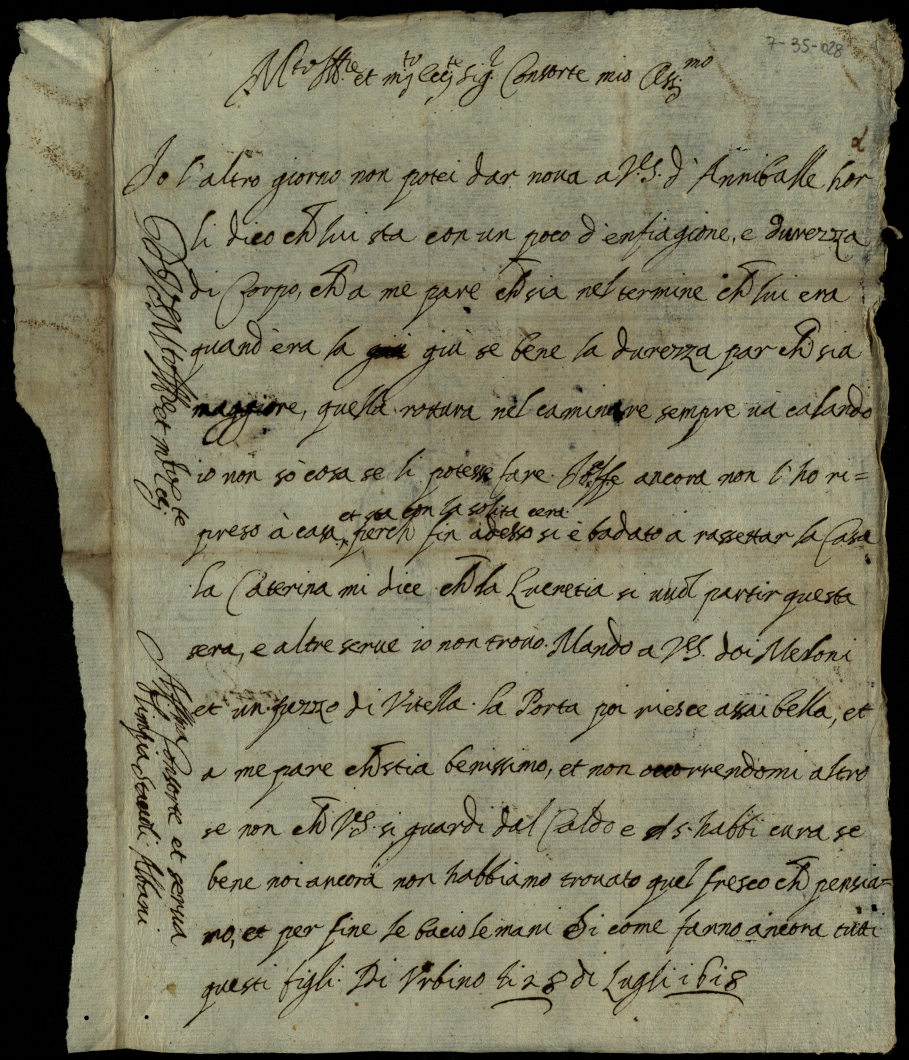 7-35-028
M.to Ill.re et m.to Ecc.te Sig.r Consorte mio Oss.mo
2
Io l'altro giorno non potei dar nova a V.S. d'Anniballe hor
li dico ch lui sta con un poco d'enfiagione, e durezza
di Corpo, ch a me pare ch sia nel termine ch lui era
quand'era la giù se bene la durezza par ch sia
maggiore, quella rottura nel caminare sempre va calando
io non sò cosa se li potesse fare. ancora non l'ho ri=
et sta con la solita cera
preso à casa, perch fin adesso si è badato a rassettar la Casa
la Caterina mi dice ch la Lucretia si vuol partir questa
sera, e altre serve io non trovo. Mando a V.S. doi Meloni
et un pezzo di Vitella. la Porta poi riesce assai bella, et
a me pare ch stia benissimo, et non occorrendomi altro
se non ch V.S. si guardi dal Caldo e s'habbi cura se
bene noi ancora non habbiamo trovato quel fresco ch pensia=
mo, et per fine le bacio le mani Si come fanno ancora tutti
questi figli. Di Urbino li 28 di Lugli 1618
Di V.S. M.to Ill.re et m.to Ecc.te
Aff.ma Consorte et serva
Olimpia Albani